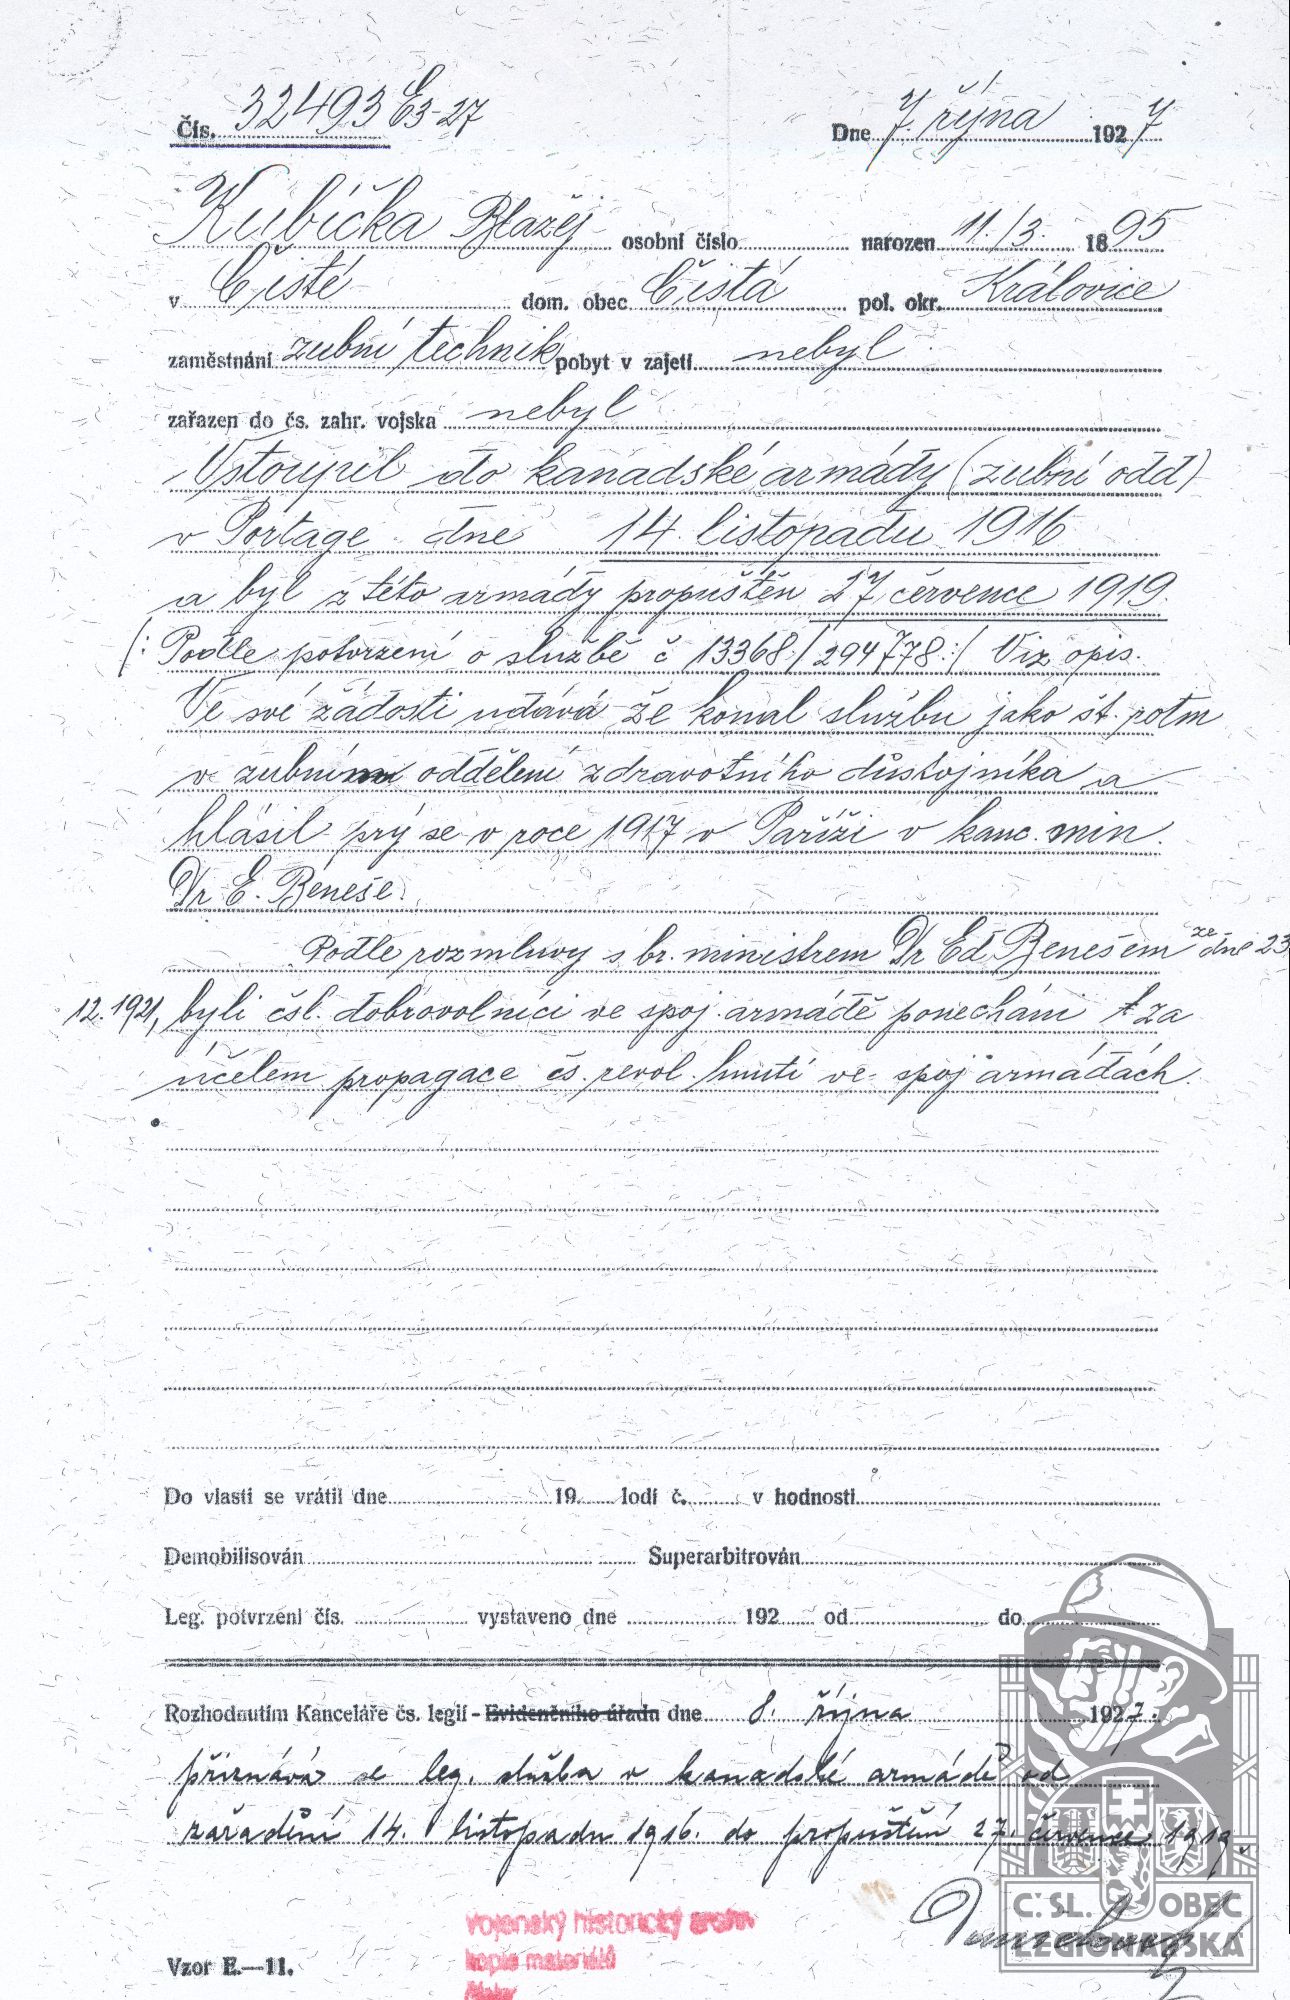 Čís. 32493 E3-27 Dne 7. října 1927
Kubíčka Blažěj osobní číslo narozen 11./3. 1895
v Čisté dom. obec Čistá pol. okr. Královice
zaměstnání zubní technik pobyt v zajetí nebyl
zařazen do čs. zahr. vojska nebyl
Vstoupil do kanadské armády (zubní odd)
v Portage dne 14. listopadu 1916
a byl z této armády propuštěn 27 července 1919.
/: Podle potvrzení o službě č 13368/294778:/ Viz opis.
Ve své žádosti udává že konal službu jako št. rotm
v zubním oddělení zdravotního důstojníka a
hlásil prý se v roce 1917 v Paříži v kanc. min.
Dr E. Beneše.
Podle rozmluvy s br. ministrem Dr Ed Benešem ze dne 23
12. 1921, byli čsl. dobrovolníci ve spoj. armádě ponecháni za
účelem propagace čs. revol. hnutí ve spoj armádách.
Do vlasti se vrátil dne 19 lodí č. v hodnosti
Demobilisován Superarbitrován
Leg. potvrzení čís. vystaveno dne 192 od do
Rozhodnutím Kanceláře čs. legií - Evidenčního úřadu dne 8. října 1927.
přiznává se leg. služba v kanadské armádě od
zařadění 14. listopadu 1916. do propuštění 27. července 1919.
Č.SL. OBEC
LEGIONÁŘSKÁ
Vojenský historický archiv
kopie materiálů
Vzor E.—11.